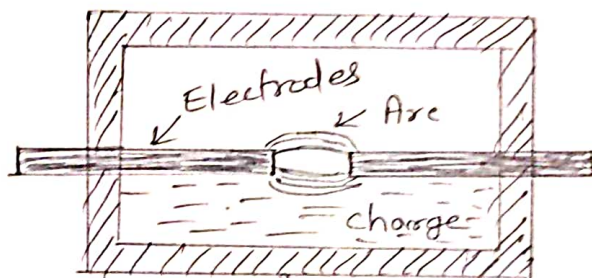 Electrodes
Arc
charge